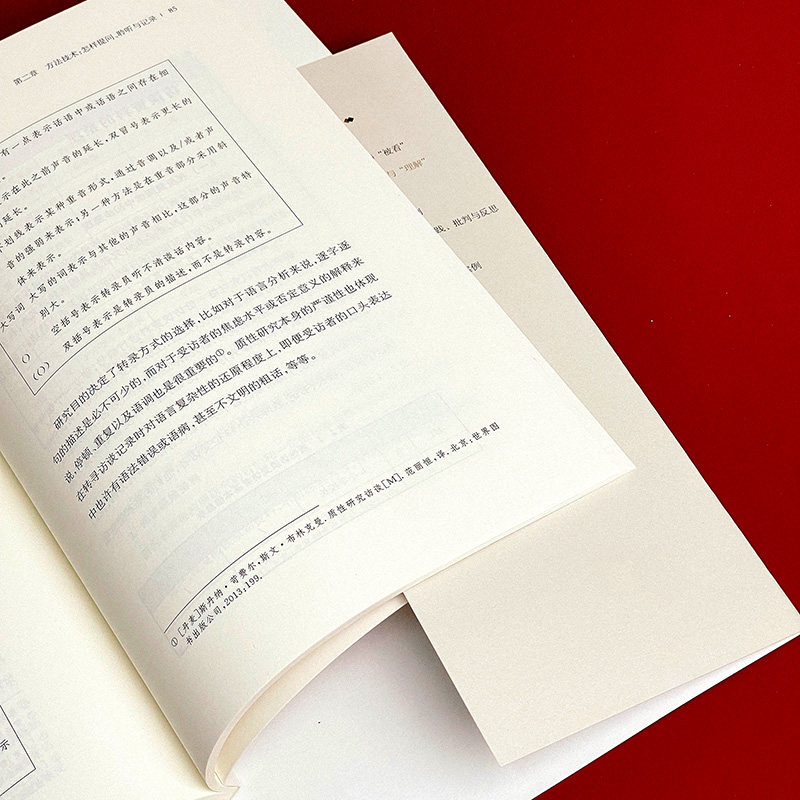 第二章 方法技术：怎样提问、聆听与记录 | 85
有一点表示话语中或话语之间存在细
示在此之前声音的延长，双冒号表示更长的
延长。
下划线表示某种重音形式，通过音调以及/或者声
音的强弱来表示；另一种方法是在重音部分采用斜
体来表示。
大写词 大写的词表示与其他的声音相比，这部分的声音特
别大。
( ) 空括号表示转录员听不清谈话内容。
(( )) 双括号表示是转录员的描述，而不是转录内容。
研究目的决定了转录方式的选择，比如对于语言分析来说，逐字逐
句的描述是必不可少的，而对于受访者的焦虑水平或否定意义的解释来
说，停顿、重复以及语调也是很重要的①。质性研究本身的严谨性也体现
在转寻访谈记录时对语言复杂性的还原程度上，即便受访者的口头表达
中也许有语法错误或语病，甚至不文明的粗话，等等。
① [丹麦]斯丹纳·苛费尔，斯文·布林克曼．质性研究访谈[M]．范丽恒，译．北京：世界图
书出版公司，2013：199．
“被看”
与“理解”
践、批判与反思
示例
示